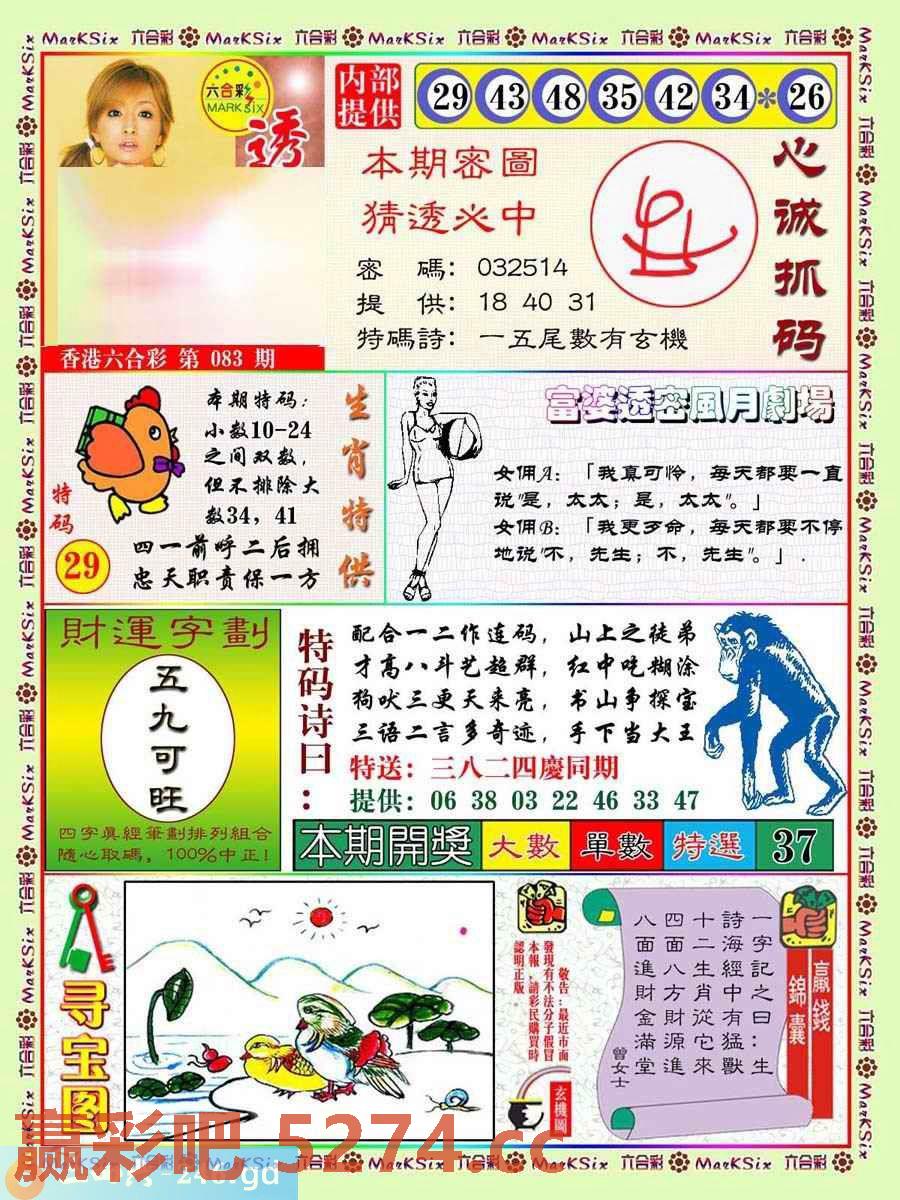 MarKSix 六合彩 MarKSix 六合彩 MarKSix 六合彩 MarKSix 六合彩 MarKSix 六合彩
六合彩
MARK SIX
透
内部
提供
29 43 48 35 42 34 * 26
本期密圖
猜透必中
密 碼: 032514
提 供: 18 40 31
特碼詩: 一五尾數有玄機
心诚抓码
香港六合彩 第 083 期
本期特码:
小数10-24
之间双数,
但不排除大
数34, 41
生肖特供
特码
29
四一前呼二后拥
忠天职责保一方
富婆透密風月劇場
女佣A: 「我真可怜, 每天都要一直
说"是, 太太; 是, 太太"。」
女佣B: 「我更歹命, 每天都要不停
地说"不, 先生; 不, 先生"。」.
財運字劃
五九可旺
四字真經筆劃排列組合
隨心取碼, 100%中正!
特码诗曰:
配合一二作连码, 山上之徒弟
才高八斗艺超群, 红中吃糊涂
狗吠三更天来亮, 书山争探宝
三语二言多奇迹, 手下当大王
特送: 三八二四慶同期
提供: 06 38 03 22 46 33 47
本期開獎 大數 單數 特選 37
寻宝图
敬告:最近市面
發現有不法分子假冒
本報,請彩民購買時
認明正版。
玄機圖
一字記之曰:生
詩海經中有猛獸
十二生肖從它來
四面八方財源進
八面進財金滿堂
曾女士
贏錢
錦囊
赢彩吧 5274.cc
MarKSix 六合彩 MarKSix 六合彩 MarKSix 六合彩 MarKSix 六合彩